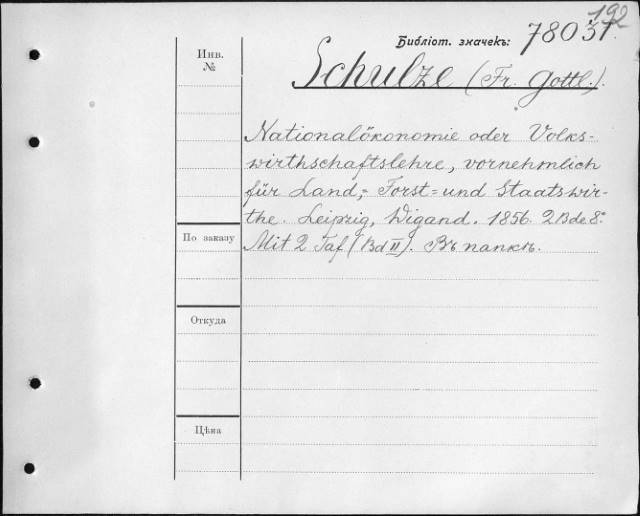 192
Библіот. значекъ: 78031.
Инв.
№
Schulze (Fr. Gottl.).
Nationalökonomie oder Volks-
wirthschaftslehre, vornehmlich
für Land,- Forst- und Staatswir-
the. Leipzig, Wigand. 1856. 2 Bde 8°.
По заказу
Mit 2 Taf (Bd II). Въ папкѣ.
Откуда
Цѣна